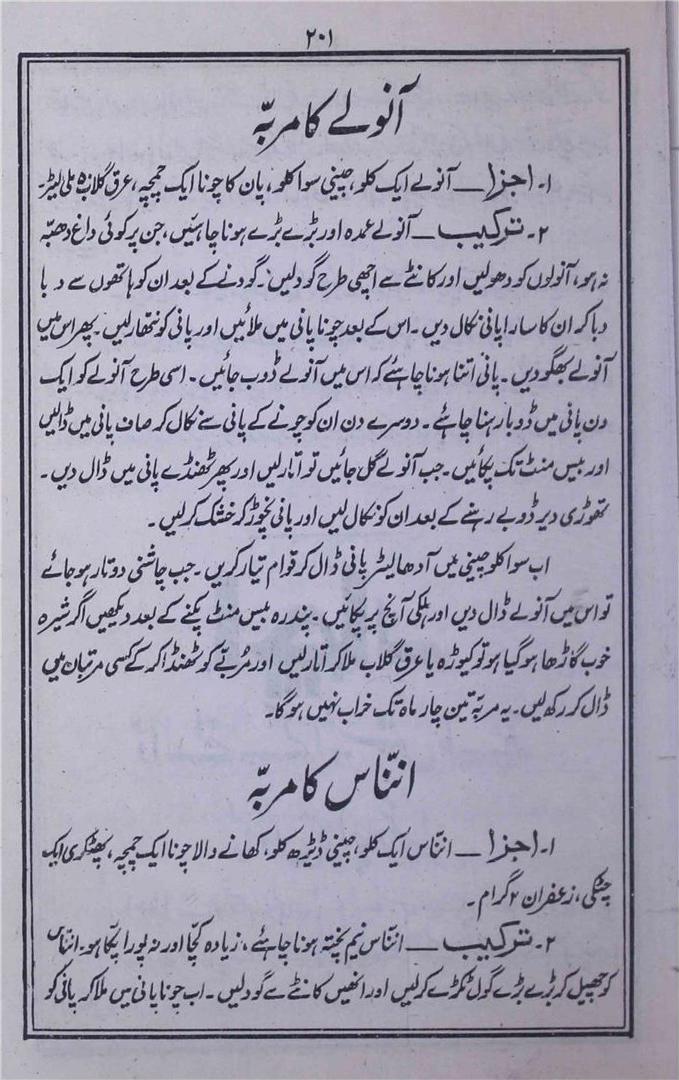 ۲۰۱
آنولے کا مربّہ
۱۔ اجزا ــ آنولے ایک کلو، چینی سوا کلو، پان کا چونا ایک چمچہ، عرق گلاب ۵ ملی لیٹر۔
۲۔ ترکیب ــ آنولے عمدہ اور بڑے بڑے ہونا چاہئیں، جن پر کوئی داغ دھبّہ
نہ ہو، آنولوں کو دھولیں اور کانٹے سے اچھی طرح گودلیں۔ گودنے کے بعد ان کو ہاتھوں سے دبا
دبا کر ان کا سارا پانی نکال دیں۔ اس کے بعد چونا پانی میں ملائیں اور پانی کو نتھارلیں۔ پھر اس میں
آنولے بھگو دیں۔ پانی اتنا ہونا چاہئے کہ اس میں آنولے ڈوب جائیں۔ اسی طرح آنولے کو ایک
دن پانی میں ڈوبا رہنا چاہئے۔ دوسرے دن ان کو چونے کے پانی سے نکال کر صاف پانی میں ڈالیں
اور بیس منٹ تک پکائیں۔ جب آنولے گل جائیں تو اتارلیں اور پھر ٹھنڈے پانی میں ڈال دیں۔
تھوڑی دیر ڈوبے رہنے کے بعد ان کو نکال لیں اور پانی نچوڑ کر خشک کرلیں۔
اب سوا کلو چینی میں آدھا لیٹر پانی ڈال کر قوام تیار کریں۔ جب چاشنی دو تار ہو جائے
تو اس میں آنولے ڈال دیں اور ہلکی آنچ پر پکائیں۔ پندرہ بیس منٹ پکنے کے بعد دیکھیں اگر شیرہ
خوب گاڑھا ہو گیا ہو تو کیوڑہ یا عرق گلاب ملا کر اتارلیں اور مُربّے کو ٹھنڈا کر کے کسی مرتبان میں
ڈال کر رکھ لیں۔ یہ مربّہ تین چار ماہ تک خراب نہیں ہوگا۔
انّناس کا مربّہ
۱۔ اجزا ــ انّناس ایک کلو، چینی ڈیڑھ کلو، کھانے والا چونا ایک چمچہ، پھٹکری ایک
چٹکی، زعفران ۲ گرام۔
۲۔ ترکیب ــ انّناس نیم پختہ ہونا چاہئے، زیادہ کچّا اور نہ پورا پکّا ہو۔ انّناس
کو چھیل کر بڑے بڑے گول ٹکڑے کرلیں اور انھیں کانٹے سے گودلیں۔ اب چونا پانی میں ملا کر پانی کو